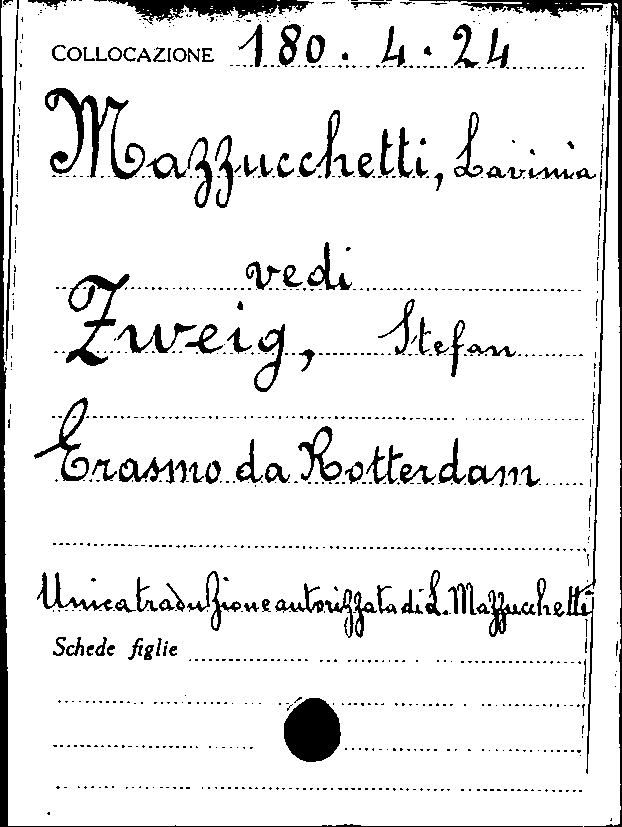 COLLOCAZIONE 180. 4. 24
Mazzucchetti, Lavinia
vedi
Zweig, Stefan
Erasmo da Rotterdam
Unica traduzione autorizzata di L. Mazzucchetti
Schede figlie